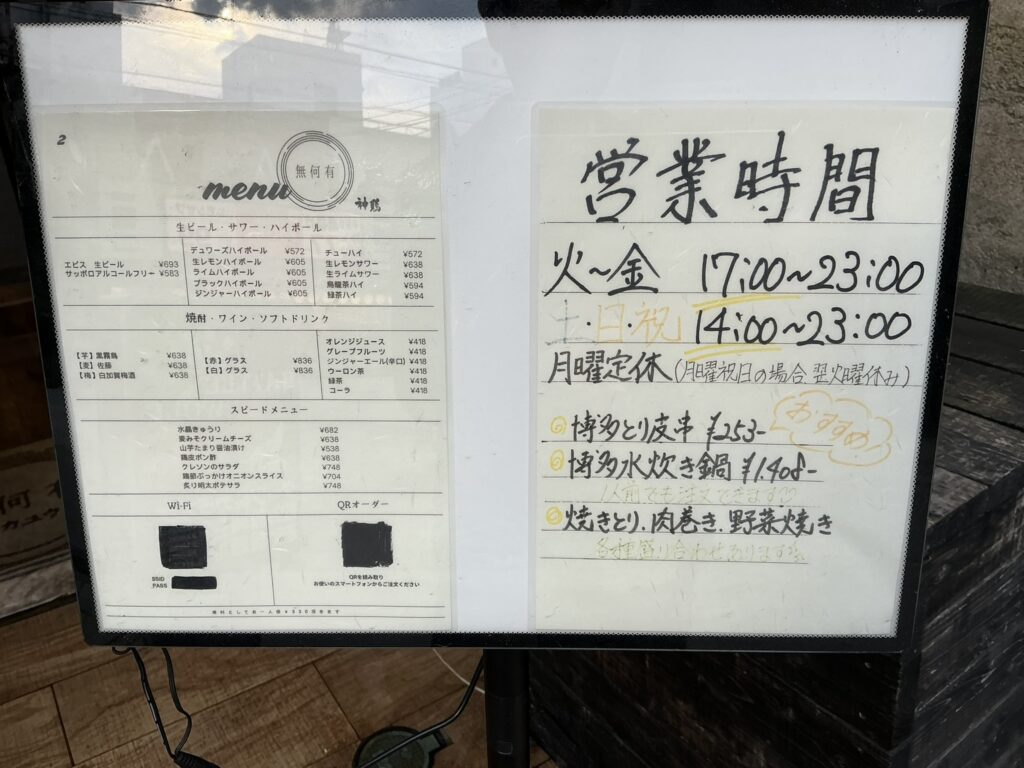 2
無何有
menu
神隠
生ビール・サワー・ハイボール
エビス 生ビール ¥693
サッポロアルコールフリー ¥583
デュワーズハイボール ¥572
生レモンハイボール ¥605
ライムハイボール ¥605
ブラックハイボール ¥605
ジンジャーハイボール ¥605
チューハイ ¥572
生レモンサワー ¥638
生ライムサワー ¥638
烏龍茶ハイ ¥594
緑茶ハイ ¥594
焼酎・ワイン・ソフトドリンク
【芋】黒霧島 ¥638
【麦】佐藤 ¥638
【梅】白加賀梅酒 ¥638
【赤】グラス ¥836
【白】グラス ¥836
オレンジジュース ¥418
グレープフルーツ ¥418
ジンジャーエール(辛口) ¥418
ウーロン茶 ¥418
緑茶 ¥418
コーラ ¥418
スピードメニュー
水晶きゅうり ¥682
麦みそクリームチーズ ¥638
山芋たまり醤油漬け ¥538
鶏皮ポン酢 ¥638
クレソンのサラダ ¥748
鶏節ぶっかけオニオンスライス ¥704
炙り明太ポテサラ ¥748
Wi-Fi
QRオーダー
SSID
PASS
QRを読み取り
お使いのスマートフォンからご注文ください
席料としてお一人様¥330頂きます
営業時間
火〜金 17:00〜23:00
土・日・祝 14:00〜23:00
月曜定休(月曜祝日の場合、翌火曜休み)
おすすめ!
◎博多とり皮串 ¥253-
◎博多水炊き鍋 ¥1.408-
1人前でも注文できます♡
◎焼きとり.肉巻き.野菜焼き
各種盛り合わせあります